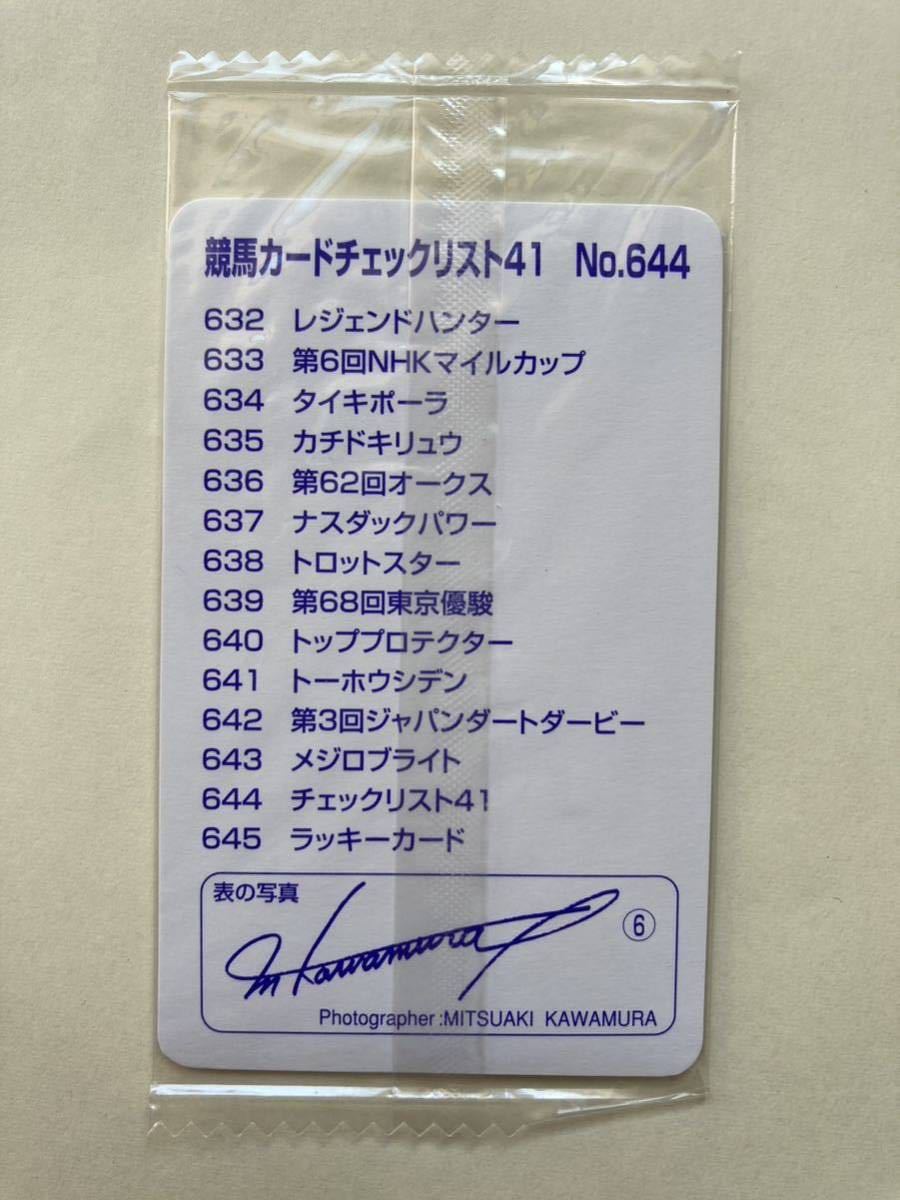 競馬カードチェックリスト41 No.644
632 レジェンドハンター
633 第6回NHKマイルカップ
634 タイキポーラ
635 カチドキリュウ
636 第62回オークス
637 ナスダックパワー
638 トロットスター
639 第68回東京優駿
640 トッププロテクター
641 トーホウシデン
642 第3回ジャパンダートダービー
643 メジロブライト
644 チェックリスト41
645 ラッキーカード
表の写真
M Kawamura
⑥
Photographer:MITSUAKI KAWAMURA